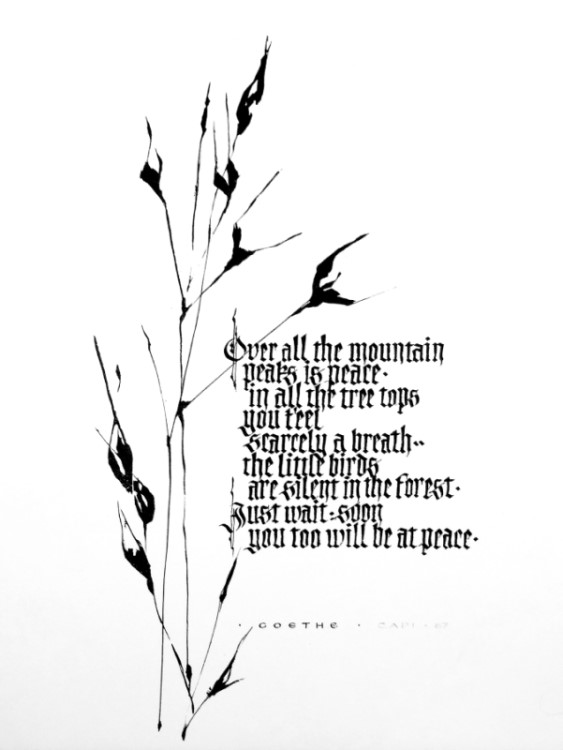 Over all the mountain
peaks is peace·
in all the tree tops
you feel
scarcely a breath··
the little birds
are silent in the forest·
Just wait-soon
you too will be at peace·
· GOETHE ·